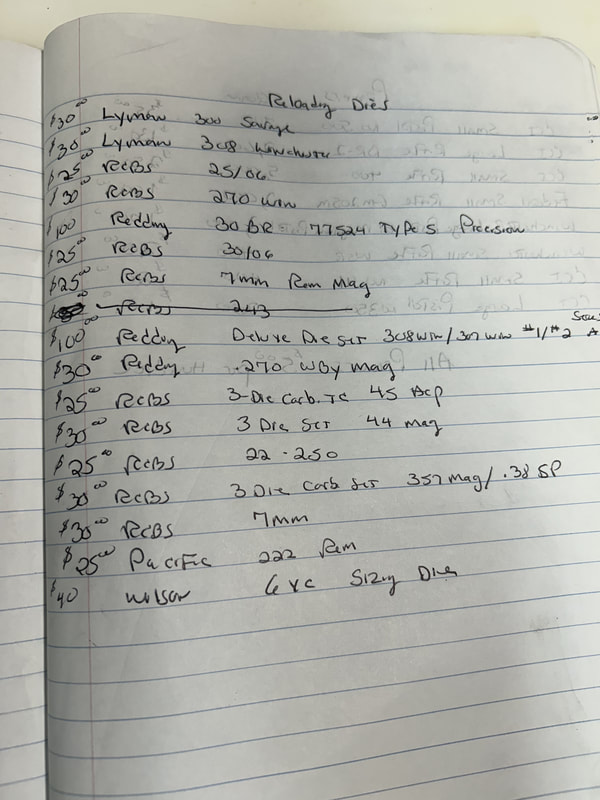 Reloading Dies
$30.00 Lyman 300 Savage
$30.00 Lyman 308 Winchester
$25.00 RCBS 25/06
$30.00 RCBS 270 Win
$100 Redding 30 BR 77524 Type S Precision
$25.00 RCBS 30/06
$25.00 RCBS 7mm Rem Mag
RCBS 243
$100.00 Redding Deluxe Die Set 308 Win/307 Win #1/#2
$30.00 Redding .270 WBY Mag
$25.00 RCBS 3-Die Carb. 45 ACP
$30.00 RCBS 3 Die Set 44 Mag
$25.00 RCBS 22-250
$30.00 RCBS 3 Die Carb Set 357 Mag/.38 SP
$30.00 RCBS 7mm
$25.00 Pacific 222 Rem
$40 Wilson 6XC Sizing Dies